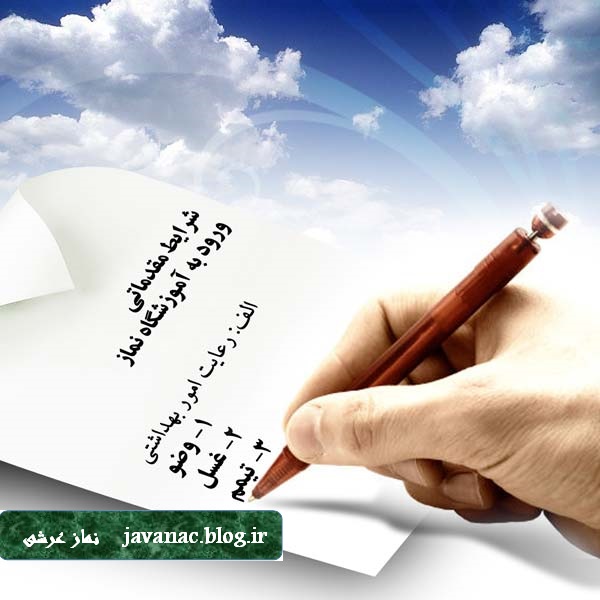 شرایط مقدماتی
ورود به آموزشگاه نماز
الف: رعایت امور بهداشتی
۱- وضو
۲- غسل
۳- تیمم
نماز عرشی javanac.blog.ir